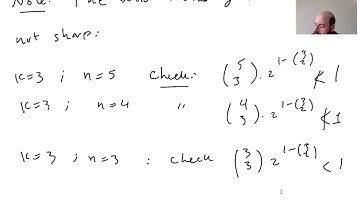 Note: The
not sharp:
k=3 ; n=5 Check: (5 3) · 2^{1-(3 2)} ≮ 1
k=3 ; n=4 " (4 3) · 2^{1-(3 2)} ≮ 1
k=3 ; n=3 : check (3 3) 2^{1-(3 2)} < 1